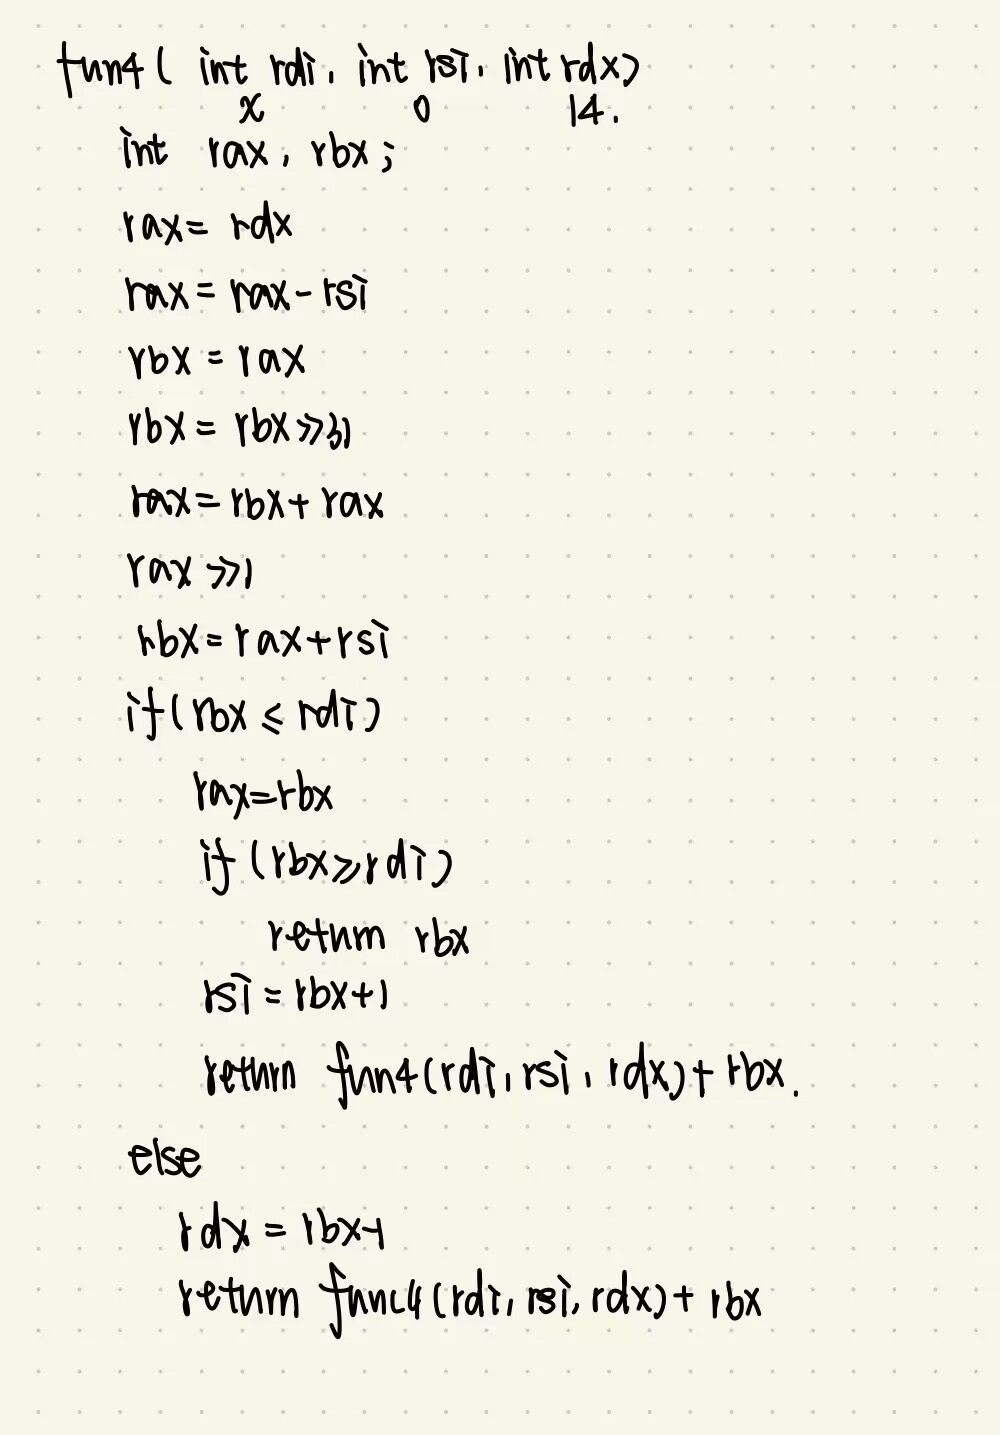 fun4( int rdi, int rsi, int rdx)
x 0 14.
int rax, rbx;
rax= rdx
rax = rax - rsi
rbx = rax
rbx = rbx >>31
rax = rbx + rax
rax >>1
rbx = rax + rsi
if( rbx ≤ rdi)
rax=rbx
if (rbx ≥ rdi)
return rbx
rsi = rbx+1
return fun4(rdi, rsi, rdx)+ rbx.
else
rdx = rbx-1
return func4(rdi, rsi, rdx)+ rbx